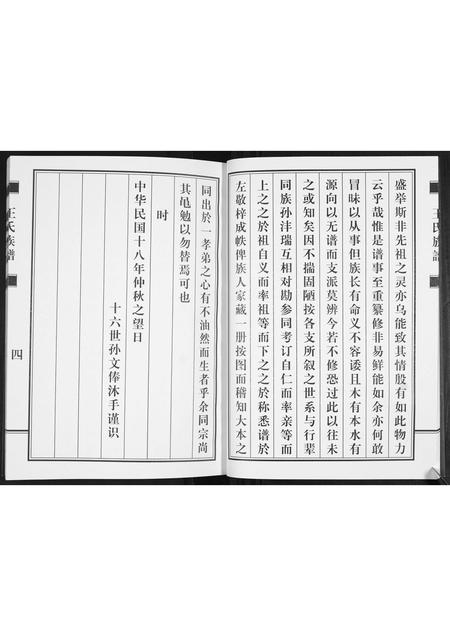 王氏族譜
盛举斯非先祖之灵亦乌能致其情殷有如此物力
云乎哉惟是谱事至重纂修非易鲜能如余亦何敢
冒昧以从事但族长有命义不容诿且木有本水有
源向以无谱而支派莫辨今若不修恐过此以往未
之或知矣因不揣固陋按各支所叙之世系与行辈
同族孙沣瑞互相对勘参同考订自仁而率亲等而
上之之於祖自义而率祖等而下之之於称悉谱於
左敬梓成帙俾族人家藏一册按图而稽知大本之
同出於一孝弟之心有不油然而生者乎余同宗尚
其黾勉以勿替焉可也
时
中华民国十八年仲秋之望日
十六世孙文俸沐手谨识
王氏族譜
四